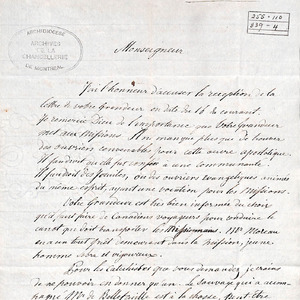 ARCHIDIOCÈSE
ARCHIVES
DE LA
CHANCELLERIE
DE MONTRÉAL
255 - 110
839 - 4
Monseigneur
J'ai l'honneur d'accuser la réception de la
lettre de votre Grandeur en date du 16 du courant.
Je remercie Dieu de l'importance que Votre Grandeur
met aux Missions. Il n'en manque plus que de trouver
des ouvriers convenables pour cette œuvre apostolique.
Il faudroit qu'elle fut confiée à une Communauté.
Il faudroit des Jésuites, ou des ouvriers évangéliques animés
du même esprit, ayant une vocation pour les Missions.
Votre Grandeur est très bien informée du choix
qu'il faut faire de Canadiens voyageurs pour conduire le
canot qui doit transporter les Missionnaires. Mr Moreau
en a un tout prêt demeurant dans la mission, jeune
homme sobre et vigoureux.
Pour les Catéchistes que vous demandez, je crains
de ne pouvoir en donner qu'un. Le Sauvage qui a
Mr de Bellefeuille est à la chasse,